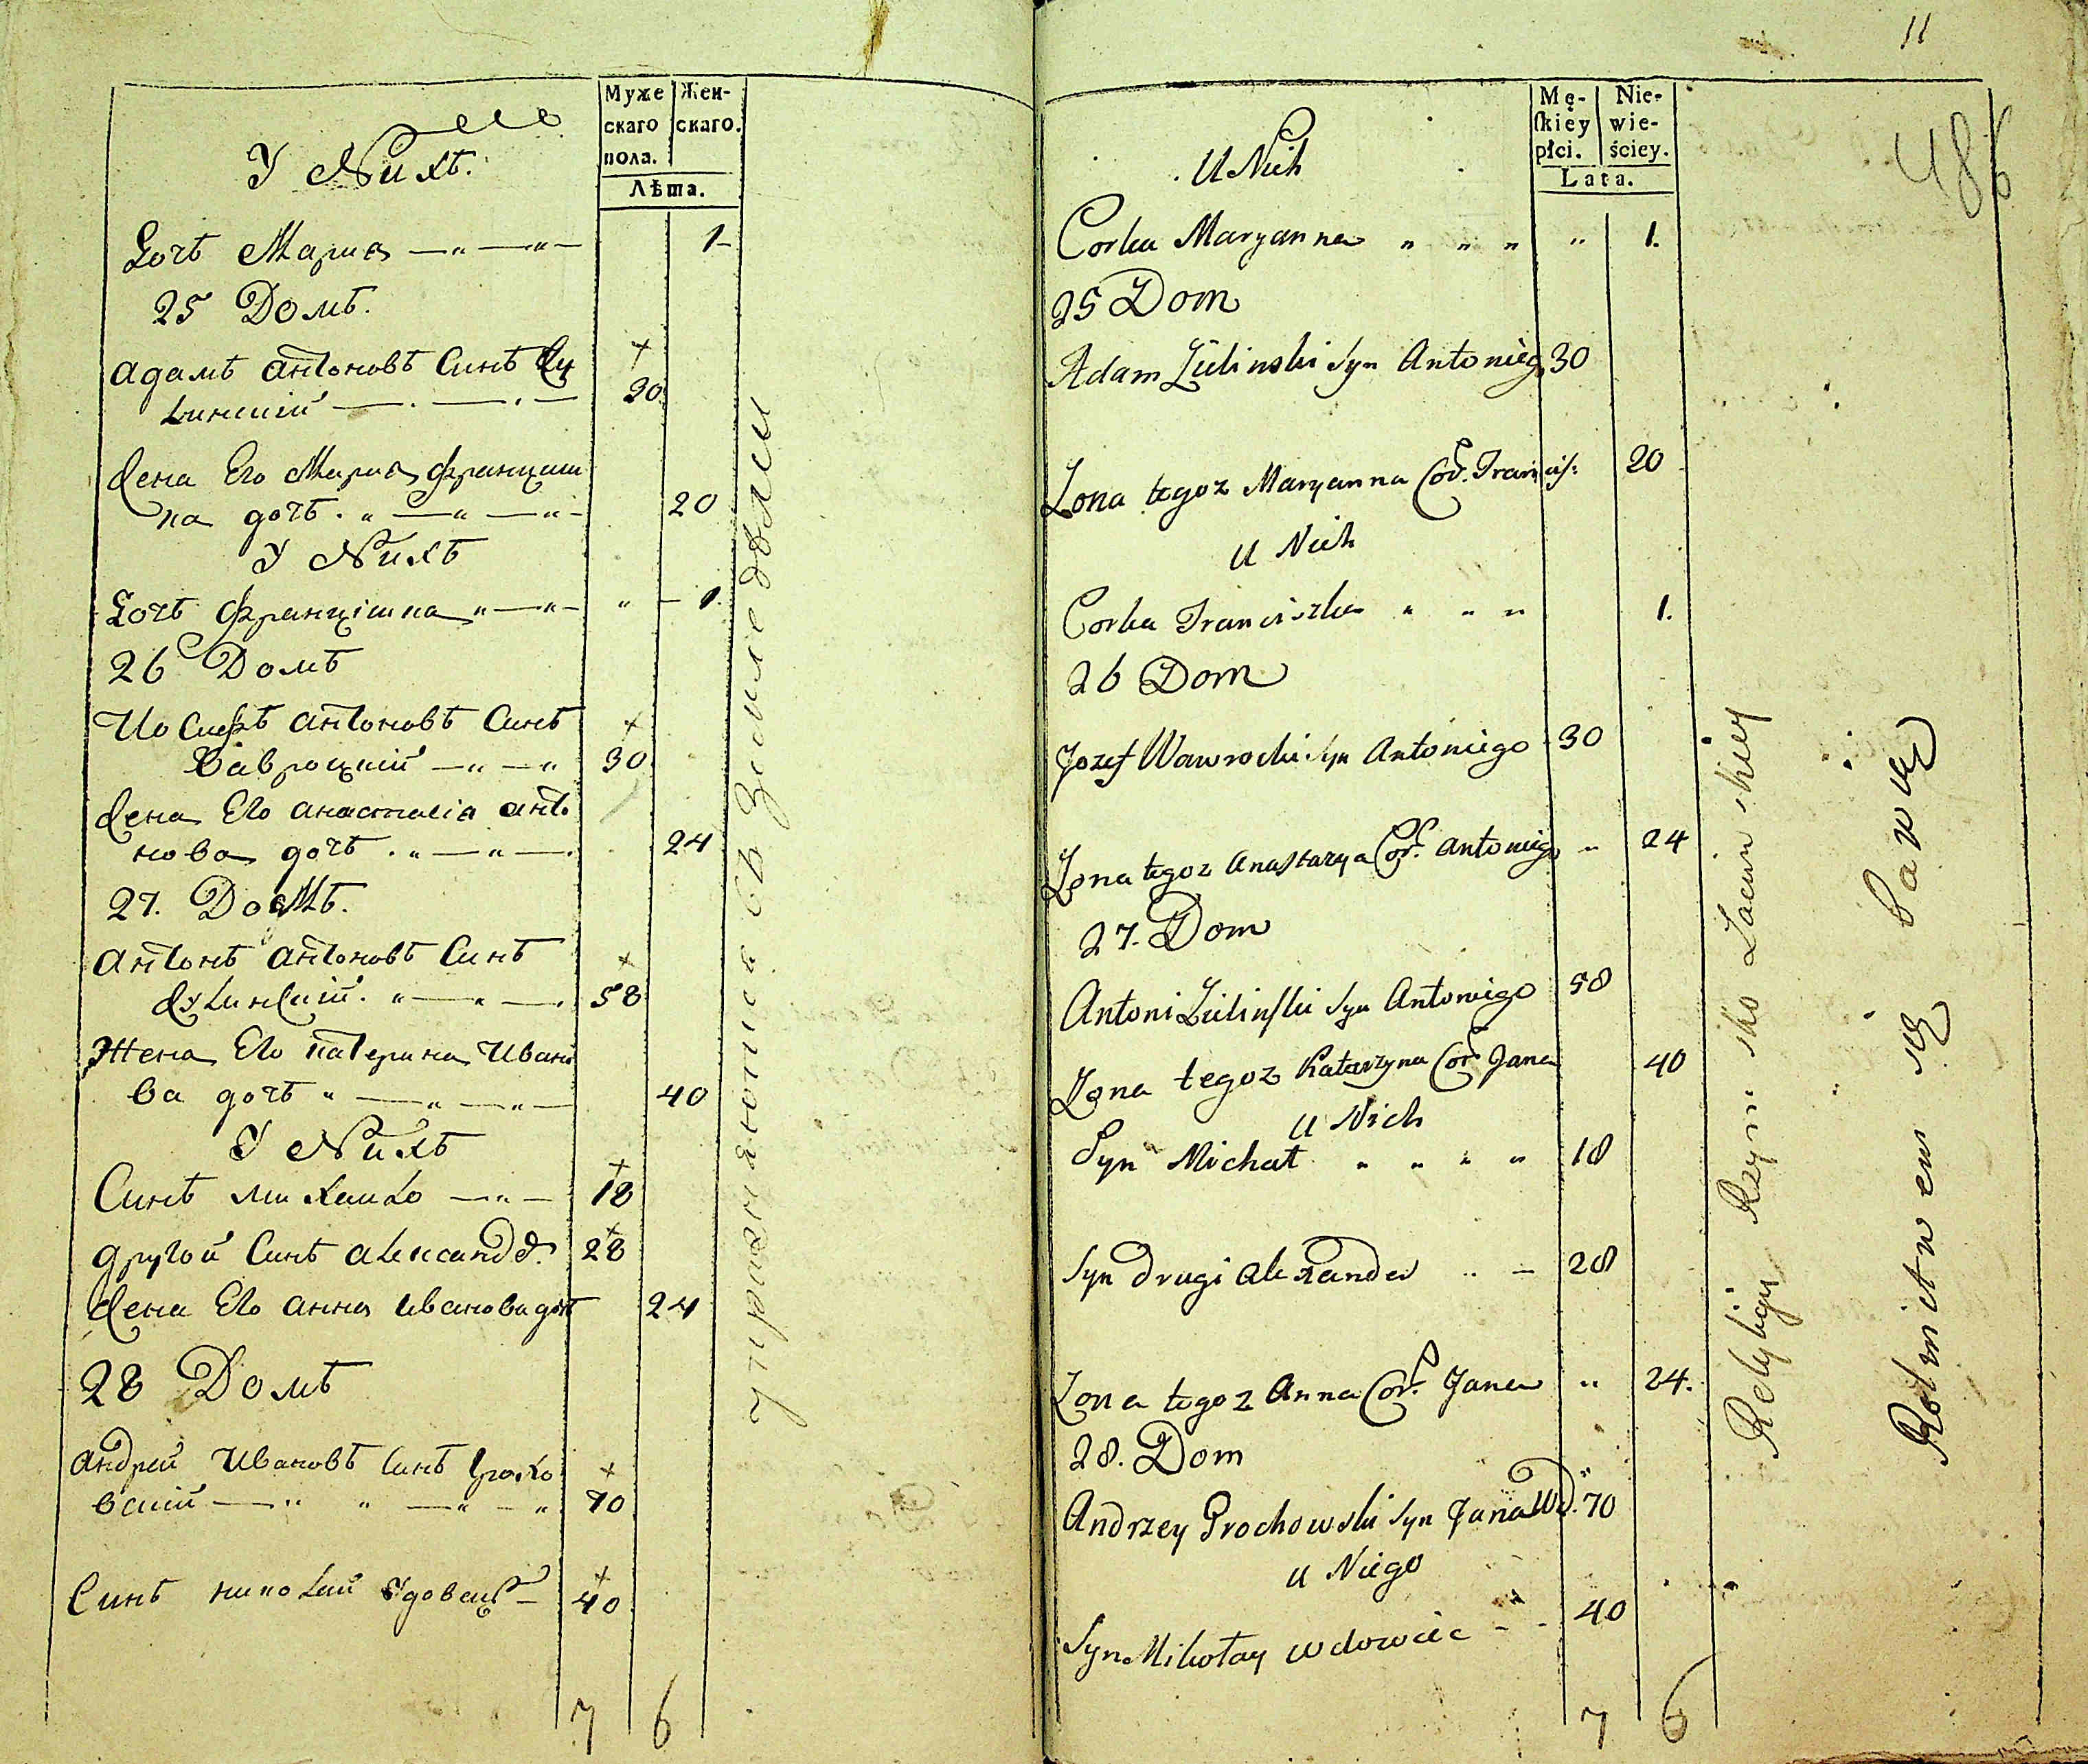 Муже
скаго
пола.
Жен-
скаго.
Лѣта.
У Нихъ.
Дочъ Мариа 1
25 Домъ.
Адамъ Антоновъ Синъ Жу
линский 30
Жена Его Мариа Францишка
дочъ 20
У Нихъ
Дочъ Францишка 1
26 Домъ
Иосифъ Антоновъ Синъ
Вавроцкий 30
Жена Его Анастасіа Анто
нова дочъ 24
27. Домъ.
Антонъ Антоновъ Синъ
Жулинский 58
Жена Его Катерина Ивано
ва дочъ 40
У Нихъ
Синъ Михайло 18
другой Синъ Александеръ 28
Жена Его Анна Иванова дочъ 24
28 Домъ
Андрей Ивановъ Синъ Грохо
вский 70
Синъ Николай Вдовецъ 40
7 6
Упражняются въ Земледѣлии
11
486
Mę-
ſkiey
płci.
Nie-
wie-
ściey.
Lata.
U Nich
Corka Maryanna 1.
25 Dom
Adam Zielinski Syn Antonieg 30
Zona tegoz Maryanna Cor. Francisz: 20
U Nich
Corka Franciszka 1.
26 Dom
Jozef Wawrocki Syn Antoniego 30
Zona tegoz Anastazya Cor. Antoniego 24
27. Dom
Antoni Zielinſki Syn Antoniego 58
Zona tegoz Katarzyna Cor Jana 40
U Nich
Syn Michał 18
Syn drugi Alexander 28
Zona tegoz Anna Cor. Jana 24.
28. Dom
Andrzey Grochowski Syn Jana Wd. 70
U Niego
Syn Mikołay wdowiec 40
7 6
Relyligii Rzym sko Łacin skiey
Rolnictwem się bawią